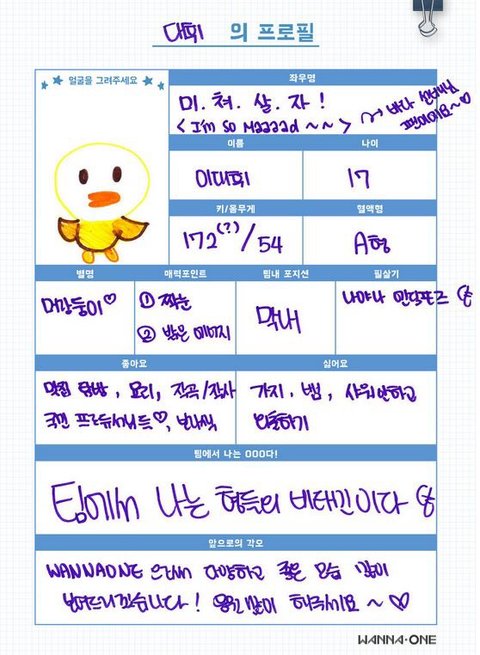 대휘 의 프로필
얼굴을 그려주세요
좌우명
미. 쳐. 살. 자!
< I'm so Maaaad ~~ >
이름
나이
이대휘
17
키/몸무게
혈액형
172(?)/54
A형
별명
매력포인트
팀내 포지션
필살기
머갈둥이♡
① 짝눈
② 밝은 에너지
막내
나야나
좋아요
싫어요
맛집 탐방, 요리, 작곡/작사
국민 프로듀서님들♡, 보라색
가지, 벌, 샤워안하고
외출하기
팀에서 나는 OOO다!
팀에서 나는 비타민이다
앞으로의 각오
WANNAONE 으로서 다양하고 좋은 모습 많이
보여드리겠습니다! 응원 많이 해주세요~♡
WANNA·ONE